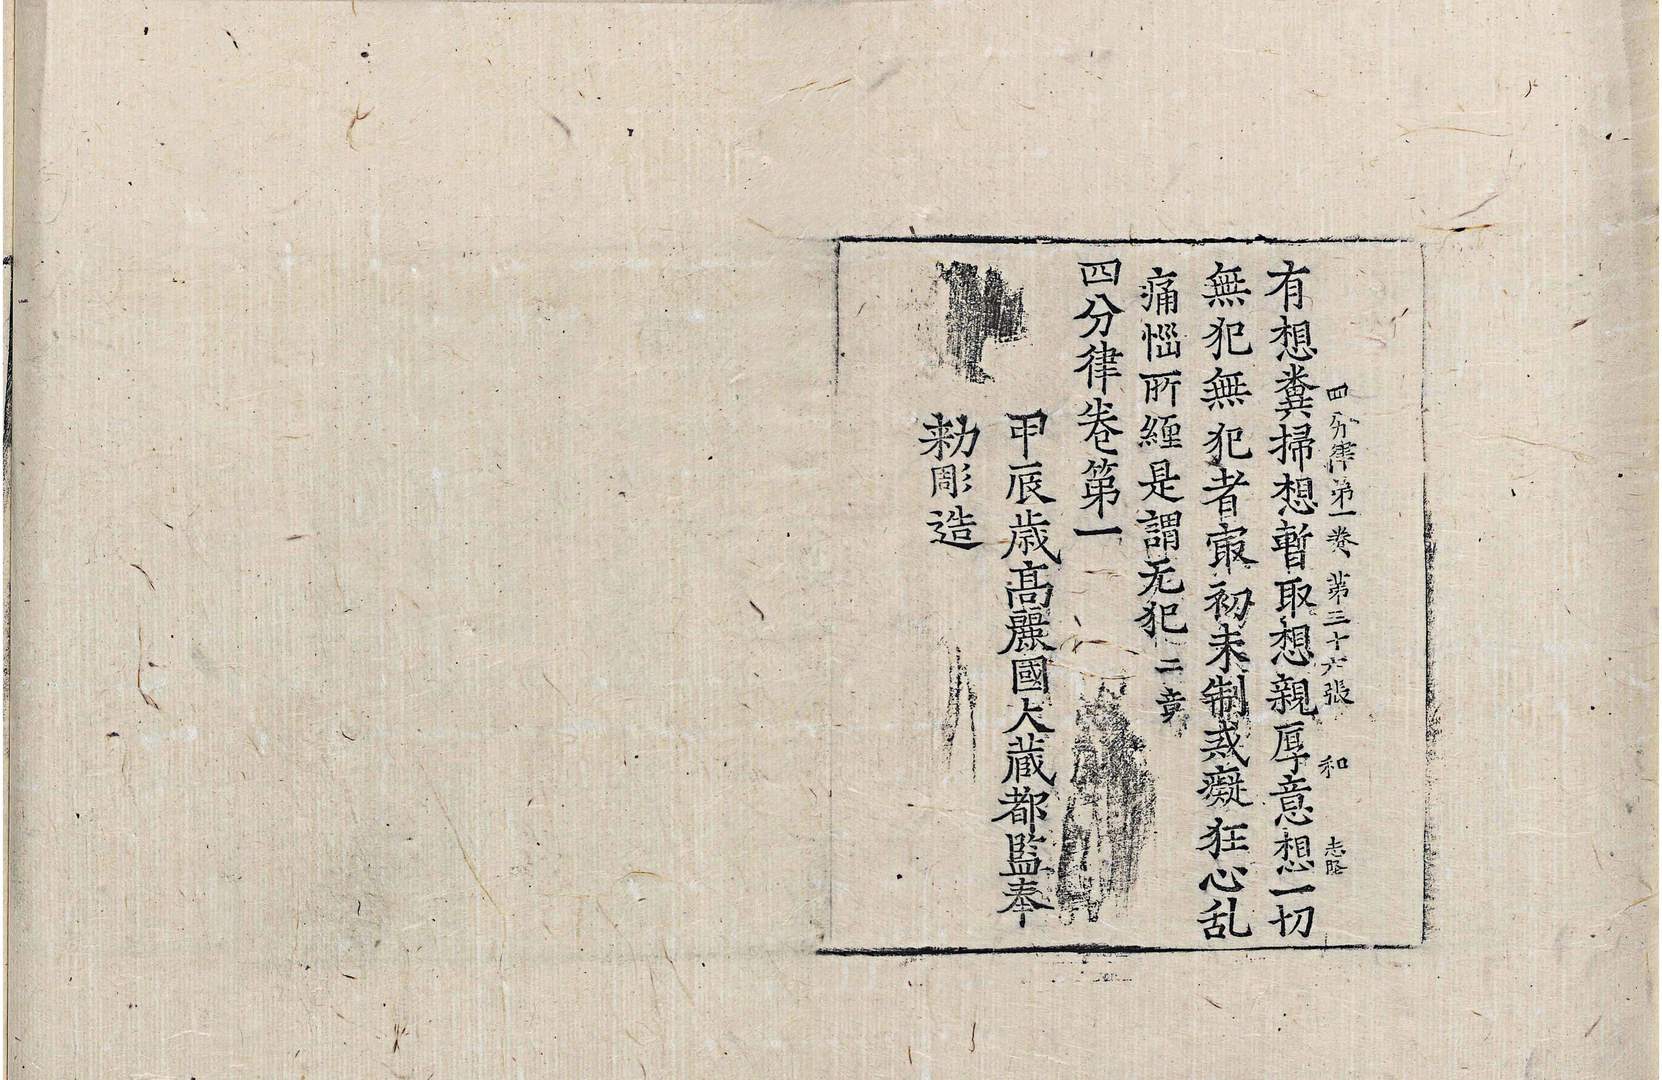 四分律第一卷 第三十六張 和 志堅
有想糞掃想暫取想親厚意想一切
無犯無犯者冣初未制戒癡狂心乱
痛惱所纏是謂无犯 二竟
四分律卷第一
甲辰歳髙麗國大藏都監奉
勑彫造